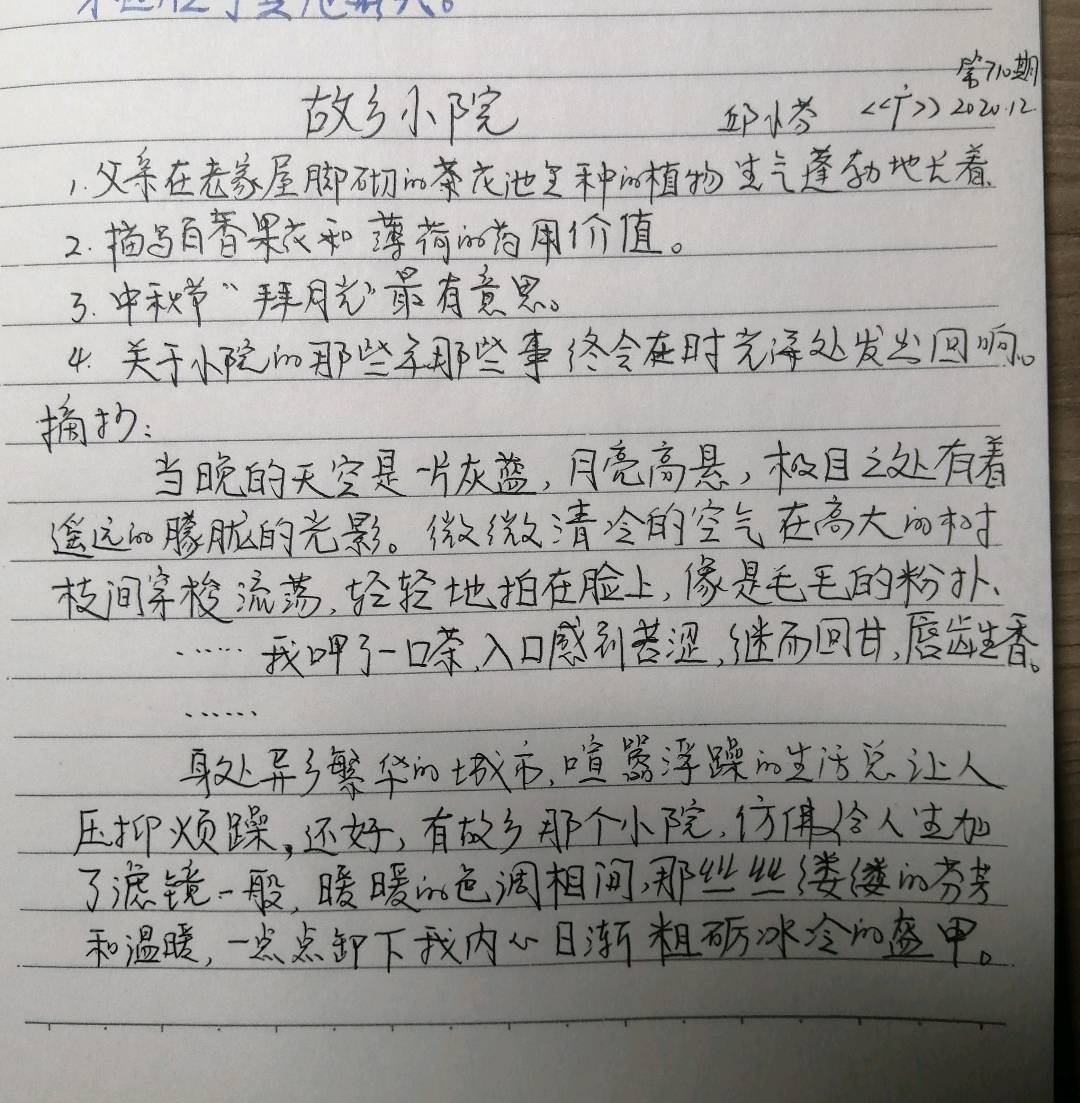 第710期
故乡小院 邱小芬 <<广>> 2020.12
1. 父亲在老家屋脚砌的茶花池里种的植物生气蓬勃地长着
2. 描写百香果花和薄荷的药用价值。
3. 中秋节“拜月光”最有意思。
4. 关于小院的那些年那些事终会在时光深处发出回响。
摘抄:
当晚的天空是一片灰蓝,月亮高悬,极目之处有着
遥远的朦胧的光影。微微清冷的空气在高大的树
枝间穿梭流荡,轻轻地拍在脸上,像是毛毛的粉扑、
…… 我呷了一口茶,入口感到苦涩,继而回甘,唇齿生香。
……
身处异乡繁华的城市,喧嚣浮躁的生活总让人
压抑烦躁,还好,有故乡那个小院,仿佛给人生加
了滤镜一般,暖暖的色调相间,那丝丝缕缕的芬芳
和温暖,一点点卸下我内心日渐粗砺冰冷的盔甲。